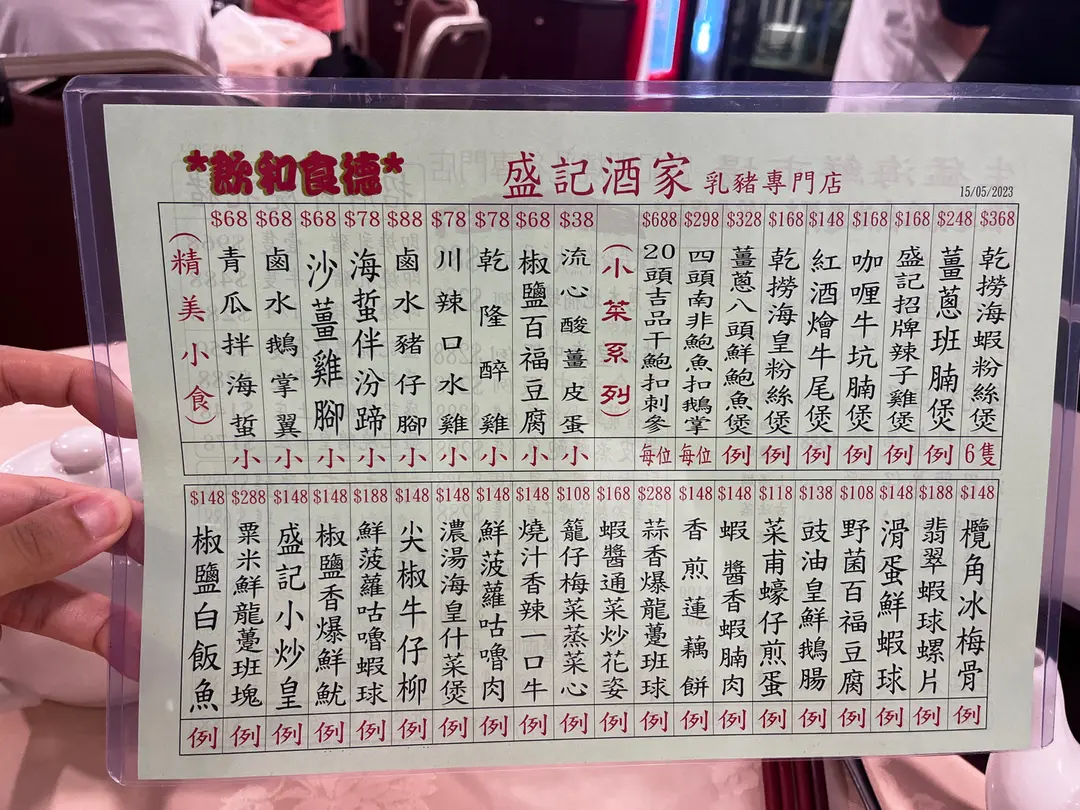 *飲和食德*
盛記酒家 乳豬專門店
15/05/2023
(精美小食)
$68 青瓜拌海蜇 小
$68 鹵水鵝掌翼 小
$68 沙薑雞腳 小
$78 海蜇伴汾蹄 小
$88 鹵水豬仔腳 小
$78 川辣口水雞 小
$78 乾隆醉雞 小
$68 椒鹽百福豆腐 小
$38 流心酸薑皮蛋 小
(小菜系列)
$688 20頭吉品干鮑扣刺參 每位
$298 四頭南非鮑魚扣鵝掌 每位
$328 薑蔥八頭鮮鮑魚煲 例
$168 乾撈海皇粉絲煲 例
$148 紅酒燴牛尾煲 例
$168 咖喱牛坑腩煲 例
$168 盛記招牌辣子雞煲 例
$248 薑蔥班腩煲 例
$368 乾撈海蝦粉絲煲 6隻
$148 椒鹽白飯魚 例
$288 粟米鮮龍躉班塊 例
$148 盛記小炒皇 例
$148 椒鹽香爆鮮魷 例
$188 鮮菠蘿咕嚕蝦球 例
$148 尖椒牛仔柳 例
$148 濃湯海皇什菜煲 例
$148 鮮菠蘿咕嚕肉 例
$148 燒汁香辣一口牛 例
$108 籠仔梅菜蒸菜心 例
$168 蝦醬通菜炒花姿 例
$288 蒜香爆龍躉班球 例
$148 香煎蓮藕餅 例
$148 蝦醬香蝦腩肉 例
$118 菜甫蠔仔煎蛋 例
$138 豉油皇鮮鵝腸 例
$108 野菌百福豆腐 例
$148 滑蛋鮮蝦球 例
$188 翡翠蝦球螺片 例
$148 欖角冰梅骨 例